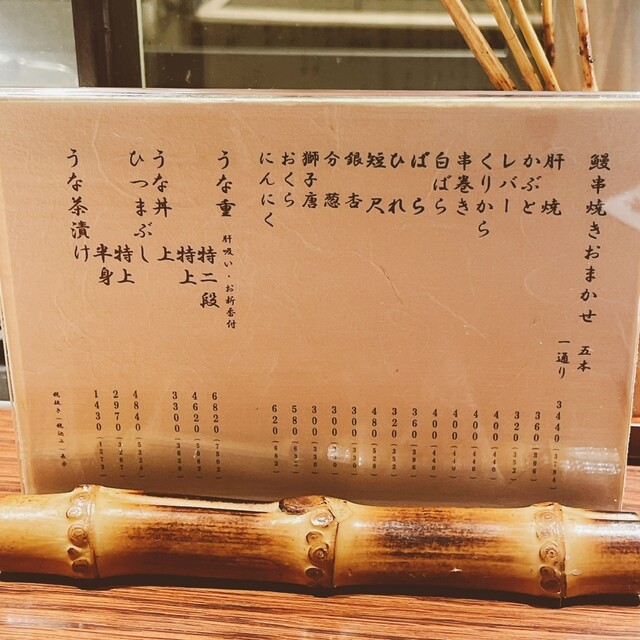 鰻串焼きおまかせ 五本
一通り 3440(3784)
肝焼 360(396)
かぶと 320(352)
レバー 400(440)
くりから 400(440)
串巻き 400(440)
白ばら 400(440)
ばら 360(396)
ひれ 320(352)
短尺 480(528)
銀杏 300(330)
分葱 300(330)
獅子唐 300(330)
おくら 580(638)
にんにく 620(682)
うな重 肝吸い・お新香付
特二段 6820(7502)
特上 4620(5082)
上 3300(3630)
うな丼
ひつまぶし
特上 4840(5324)
半身 2970(3267)
うな茶漬け 1430(1573)